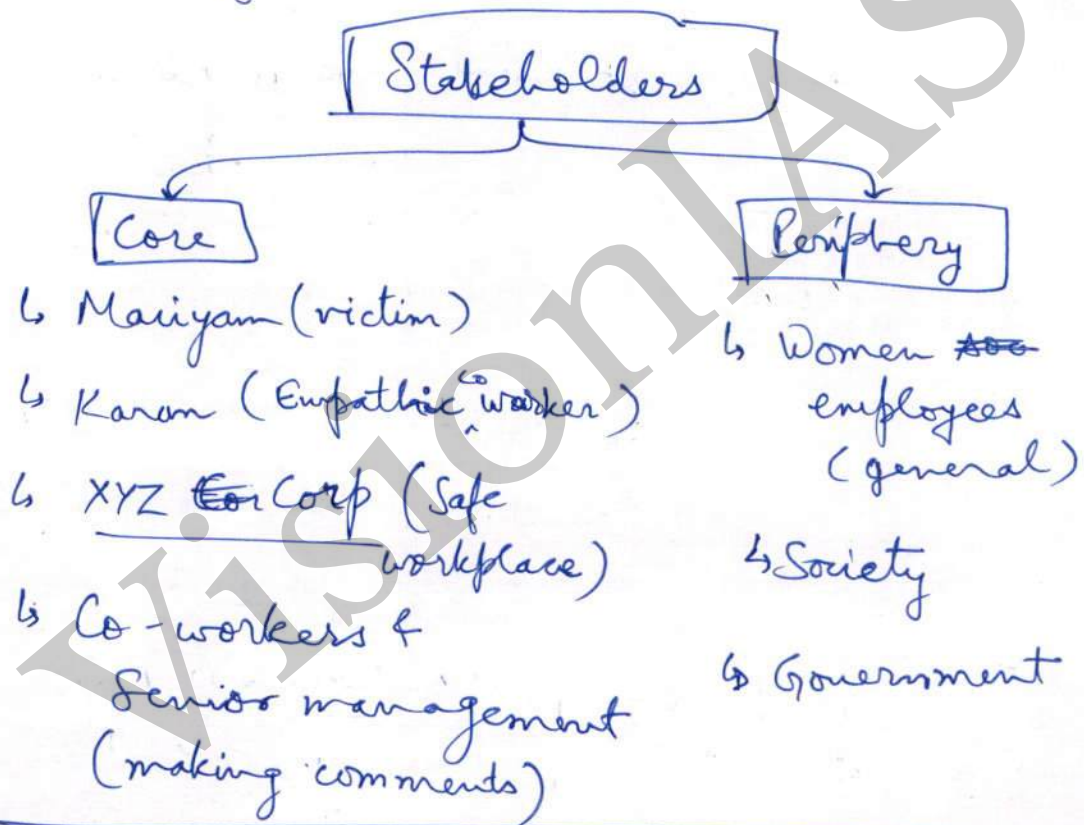 Stakeholders
Core
↳ Mariyam (victim)
↳ Karan (Empathic co worker)
↳ XYZ Corp (Safe
workplace)
↳ Co-workers &
Senior management
(making comments)
Periphery
↳ Women
employees
(general)
↳ Society
↳ Government
VisionIAS